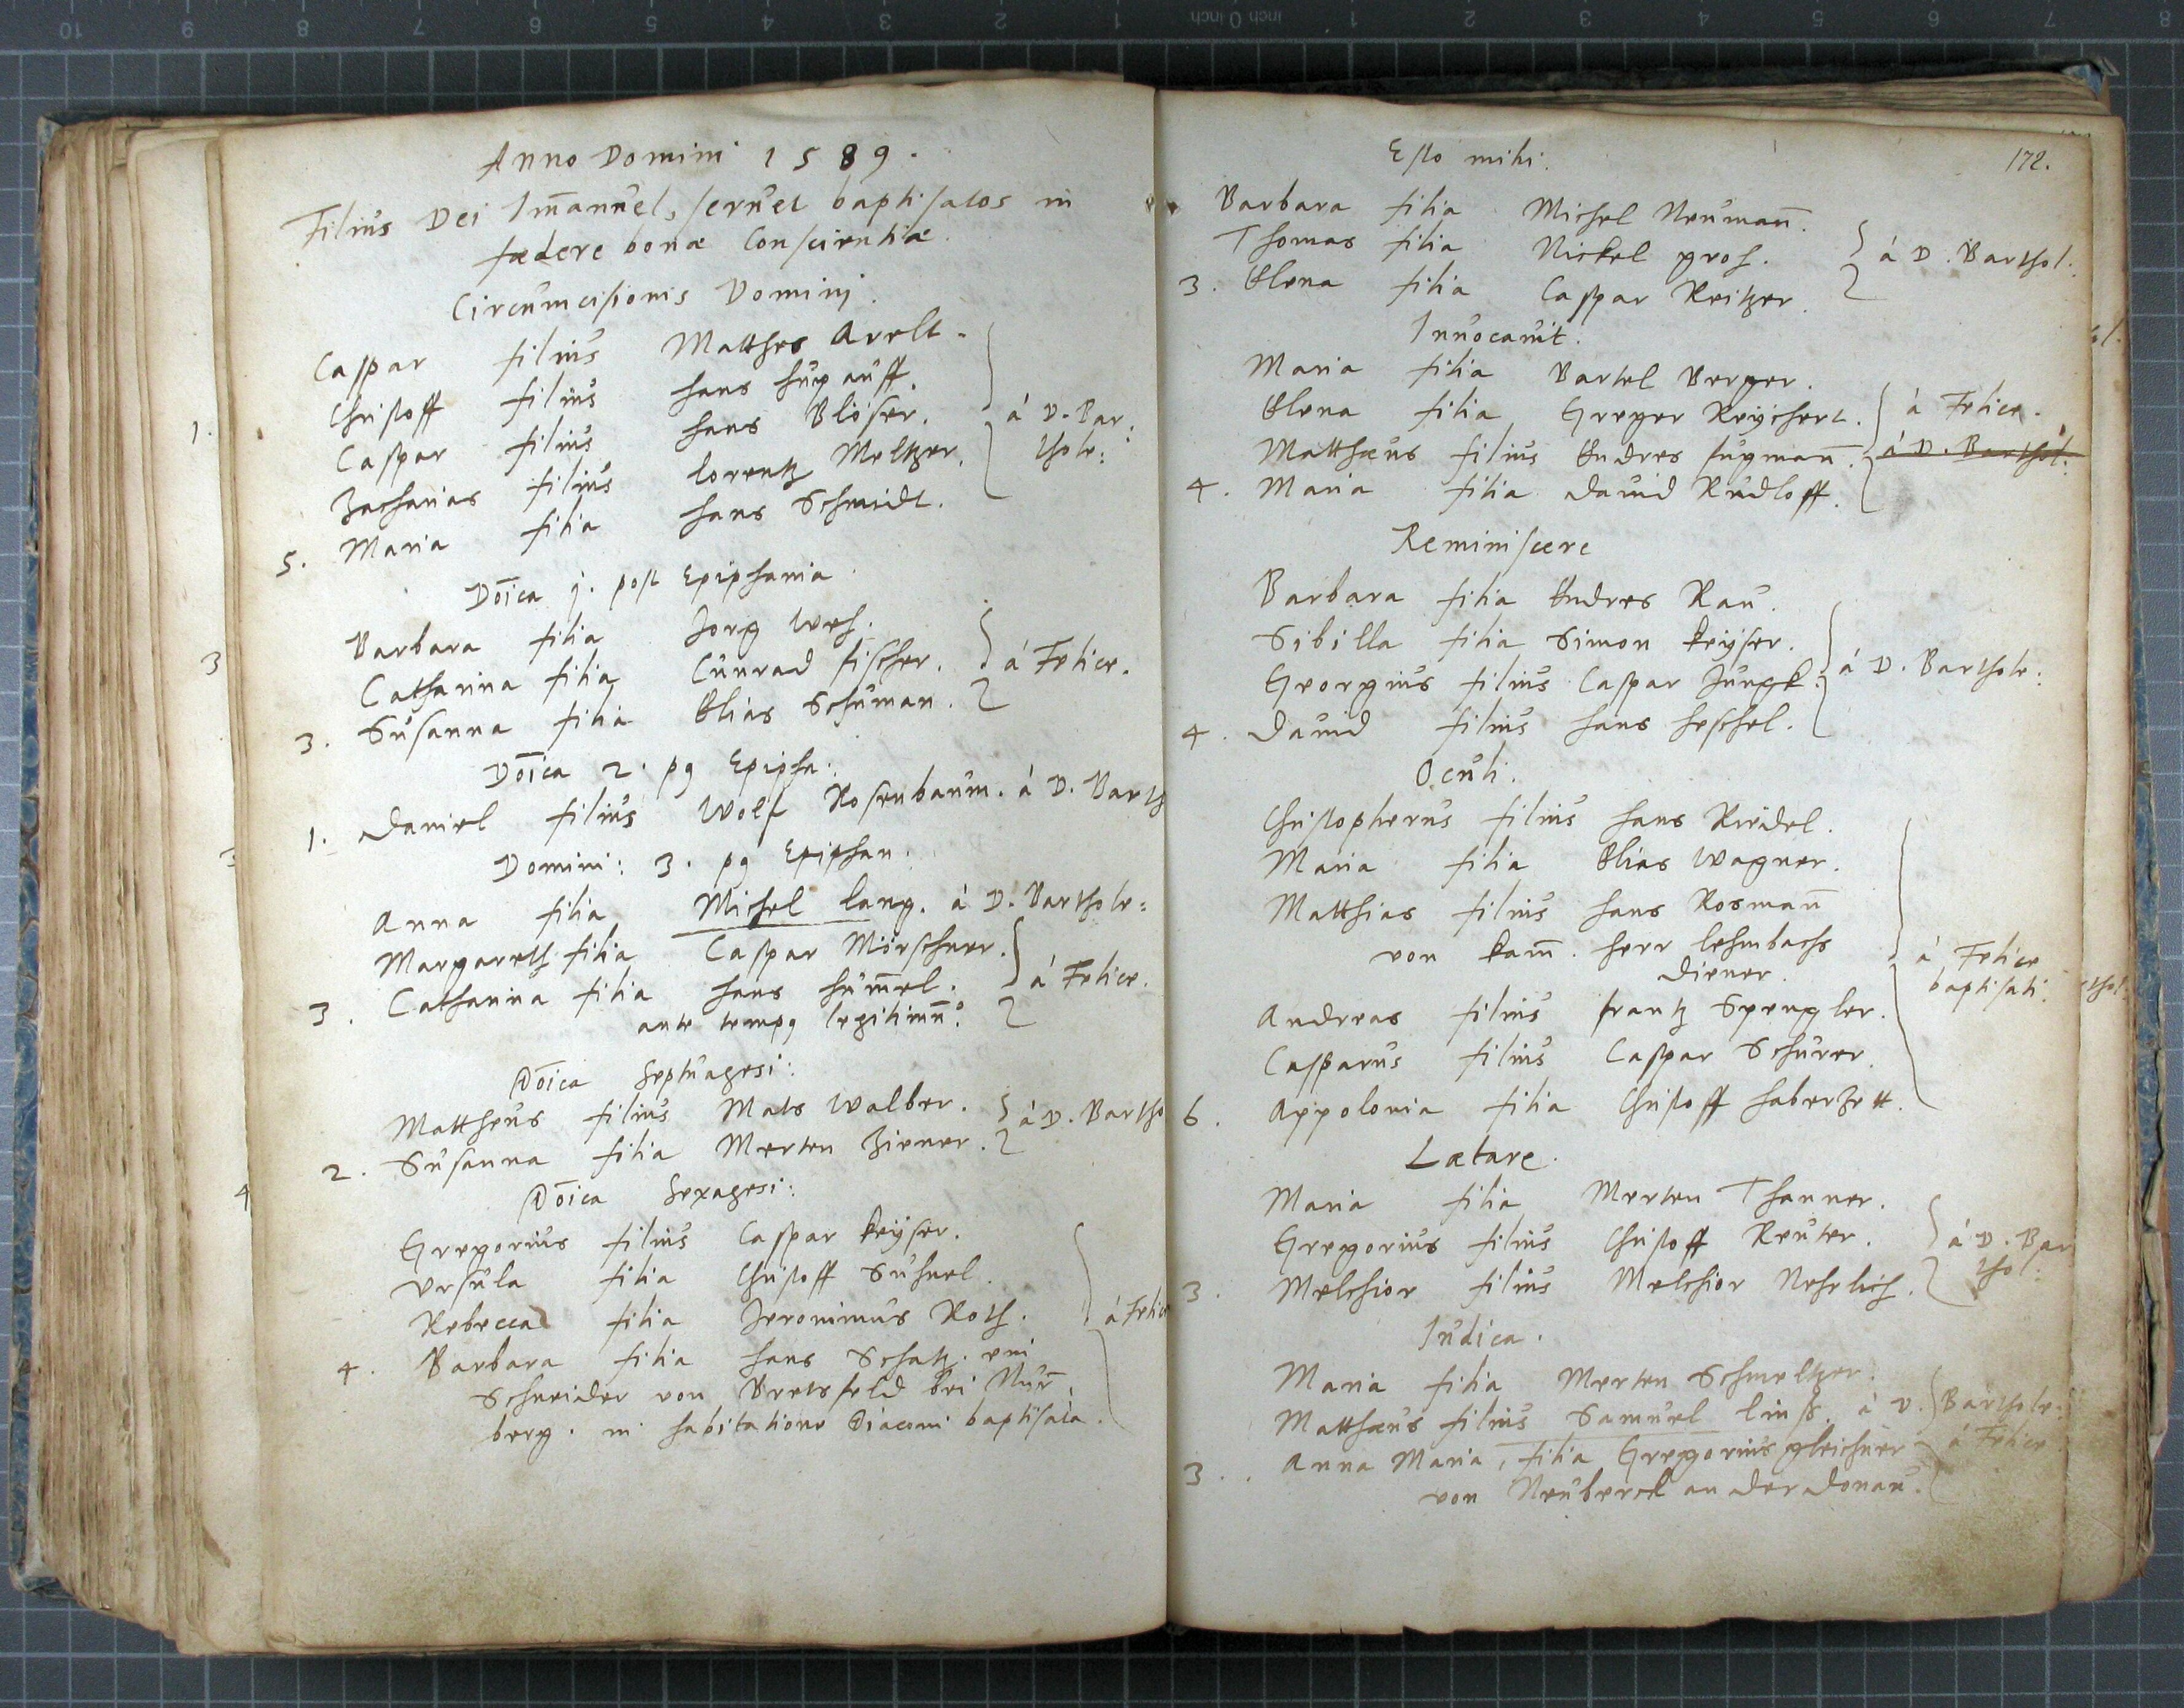 Anno Domini 1589.
Filius Dei Im̄anuel, seruet baptisatos in
fædere bonæ Conscientiæ.
Circumcisionis Domini.
Caspar filius Matthes Arelt.
Christoff filius Hans Hupauff.
Caspar filius Hans Blöser. á D. Bar:
Zacharias filius Lorentz Meltzer. thole:
5. Maria filia Hans Schmidt.
Dōica j. post Epiphania.
Barbara filia Jorg Wes.
Catharina filia Cunrad Fischer. á Felice.
3. Susanna filia Elias Schuman.
Dōica 2. p9 Epipha:
1. Daniel filius Wolf Rosenbaum. á D. Barth
Domini: 3. p9 Epiphan.
Anna filia Michel Lang. á D. Barthole:
Margareth filia Caspar Mörschner.
3. Catharina filia Hans Hum̄el. á Felice.
ante temp9 legitimū.
Dōica Septuagesi:
Mattheus filius Mats Walber. á D. Bartho
2. Susanna filia Merten Ziener.
Dōica Sexagesi:
Gregorius filius Caspar Keÿser.
Ursula filia Christoff Suhnel.
Rebecca filia Jeronimus Roth. á Felice
4. Barbara filia Hans Schatz. ein
Schneider von Bretsfeld bei Nürn̄
berg. in habitatione Diaconi baptisata.
172.
Esto mihi.
Barbara filia Michel Neuman̄.
Thomas filia Nickel gros. á D. Barthol:
3. Elena filia Caspar Reitzer.
Inuocauit.
Maria filia Bartel Berger.
Elena filia Greger Reÿchert. á Felice.
Matthæus filius Endres Lugman̄. á D. Barthol:
4. Maria filia Dauid Rudloff.
Reminiscere
Barbara filia Endres Rau.
Sibilla filia Simon Keÿser.
Georgius filius Caspar Jungk. á D. Barthole:
4. Dauid filius Hans Heschel.
Oculi.
Christopherus filius Hans Riedel.
Maria filia Elias Wagner.
Matthias filius Hans Rosman̄
von Kam̄. Herr Lehmbachs
Diener. á Felice
baptisati.
Andreas filius Frantz Spengler.
Casparus filius Caspar Schürer.
6. Appolonia filia Christoff Haberzett.
Lætare.
Maria filia Merten Thanner.
Gregorius filius Christoff Reuter. á D. Bar
3. Melchior filius Melchior Nehrlich. thol:
Iudica.
Maria filia Merten Schmeltzer.
Matthæus filius Samuel Linß. á D. Barthole:
3. Anna Maria, filia Gregorius gleichner á Felice
von Neuberck an der Donau.